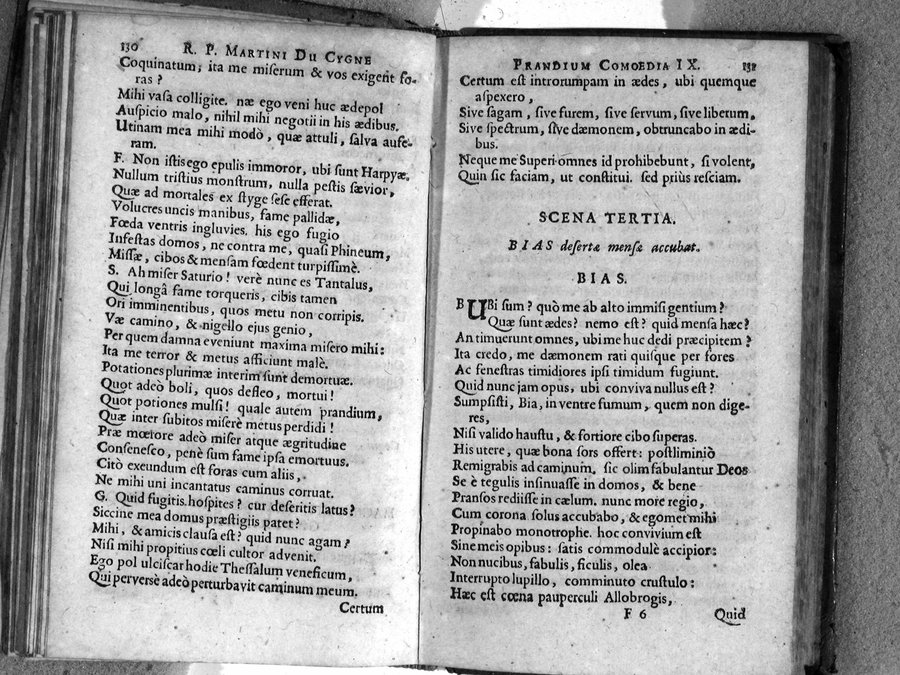 130 R. P. MARTINI DU CYGNE
Coquinatum; ita me miserum & vos exigent fo-
ras?
Mihi vasa colligite. næ ego veni huc ædepol
Auspicio malo, nihil mihi negotii in his ædibus.
Utinam mea mihi modò, quæ attuli, salva aufe-
ram.
F. Non istis ego epulis immoror, ubi sunt Harpyæ,
Nullum tristius monstrum, nulla pestis sævior,
Quæ ad mortales ex styge sese efferat.
Volucres uncis manibus, fame pallidæ,
Fœda ventris ingluvies. his ego fugio
Infestas domos, ne contra me, quasi Phineum,
Missæ, cibos & mensam fœdent turpissimè.
S. Ah miser Saturio! verè nunc es Tantalus,
Qui longâ fame torqueris, cibis tamen
Ori imminentibus, quos metu non corripis.
Væ camino, & nigello ejus genio,
Per quem damna eveniunt maxima misero mihi:
Ita me terror & metus afficiunt malè.
Potationes plurimæ interim sunt demortuæ.
Quot adeò boli, quos defleo, mortui!
Quot potiones mulsi! quale autem prandium,
Quæ inter subitos miserè metus perdidi!
Præ mœrore adeò miser atque ægritudine
Consenesco, penè sum fame ipsa emortuus.
Citò exeundum est foras cum aliis,
Ne mihi uni incantatus caminus corruat.
G. Quid fugitis hospites? cur deseritis latus?
Siccine mea domus præstigiis patet?
Mihi, & amicis clausa est? quid nunc agam?
Nisi mihi propitius cœli cultor advenit.
Ego pol ulciscar hodie Thessalum veneficum,
Qui perversè adeò perturbavit caminum meum.
Certum
PRANDIUM COMOEDIA IX. 131
Certum est introrumpam in ædes, ubi quemque
aspexero,
Sive sagam, sive furem, sive servum, sive liberum,
Sive spectrum, sive dæmonem, obtruncabo in ædi-
bus.
Neque me Superi omnes id prohibebunt, si volent,
Quin sic faciam, ut constitui. sed priùs resciam.
SCENA TERTIA.
BIAS desertæ mensæ accubat.
BIAS.
B UBi sum? quò me ab alto immisi gentium?
Quæ sunt ædes? nemo est? quid mensa hæc?
An timuerunt omnes, ubi me huc dedi præcipitem?
Ita credo, me dæmonem rati quisque per fores
Ac fenestras timidiores ipsi timidum fugiunt.
Quid nunc jam opus, ubi conviva nullus est?
Sumpsisti, Bia, in ventre fumum, quem non dige-
res,
Nisi valido haustu, & fortiore cibo superas.
His utere, quæ bona sors offert: postliminiò
Remigrabis ad caminum. sic olim fabulantur Deos
Se è tegulis insinuasse in domos, & bene
Pransos rediisse in cælum. nunc more regio,
Cum corona solus accubabo, & egomet mihi
Propinabo monotrophe. hoc convivium est
Sine meis opibus: satis commodulè accipior:
Non nucibus, fabulis, ficulis, olea
Interrupto lupillo, comminuto crustulo:
Hæc est cœna pauperculi Allobrogis,
F 6 Quid